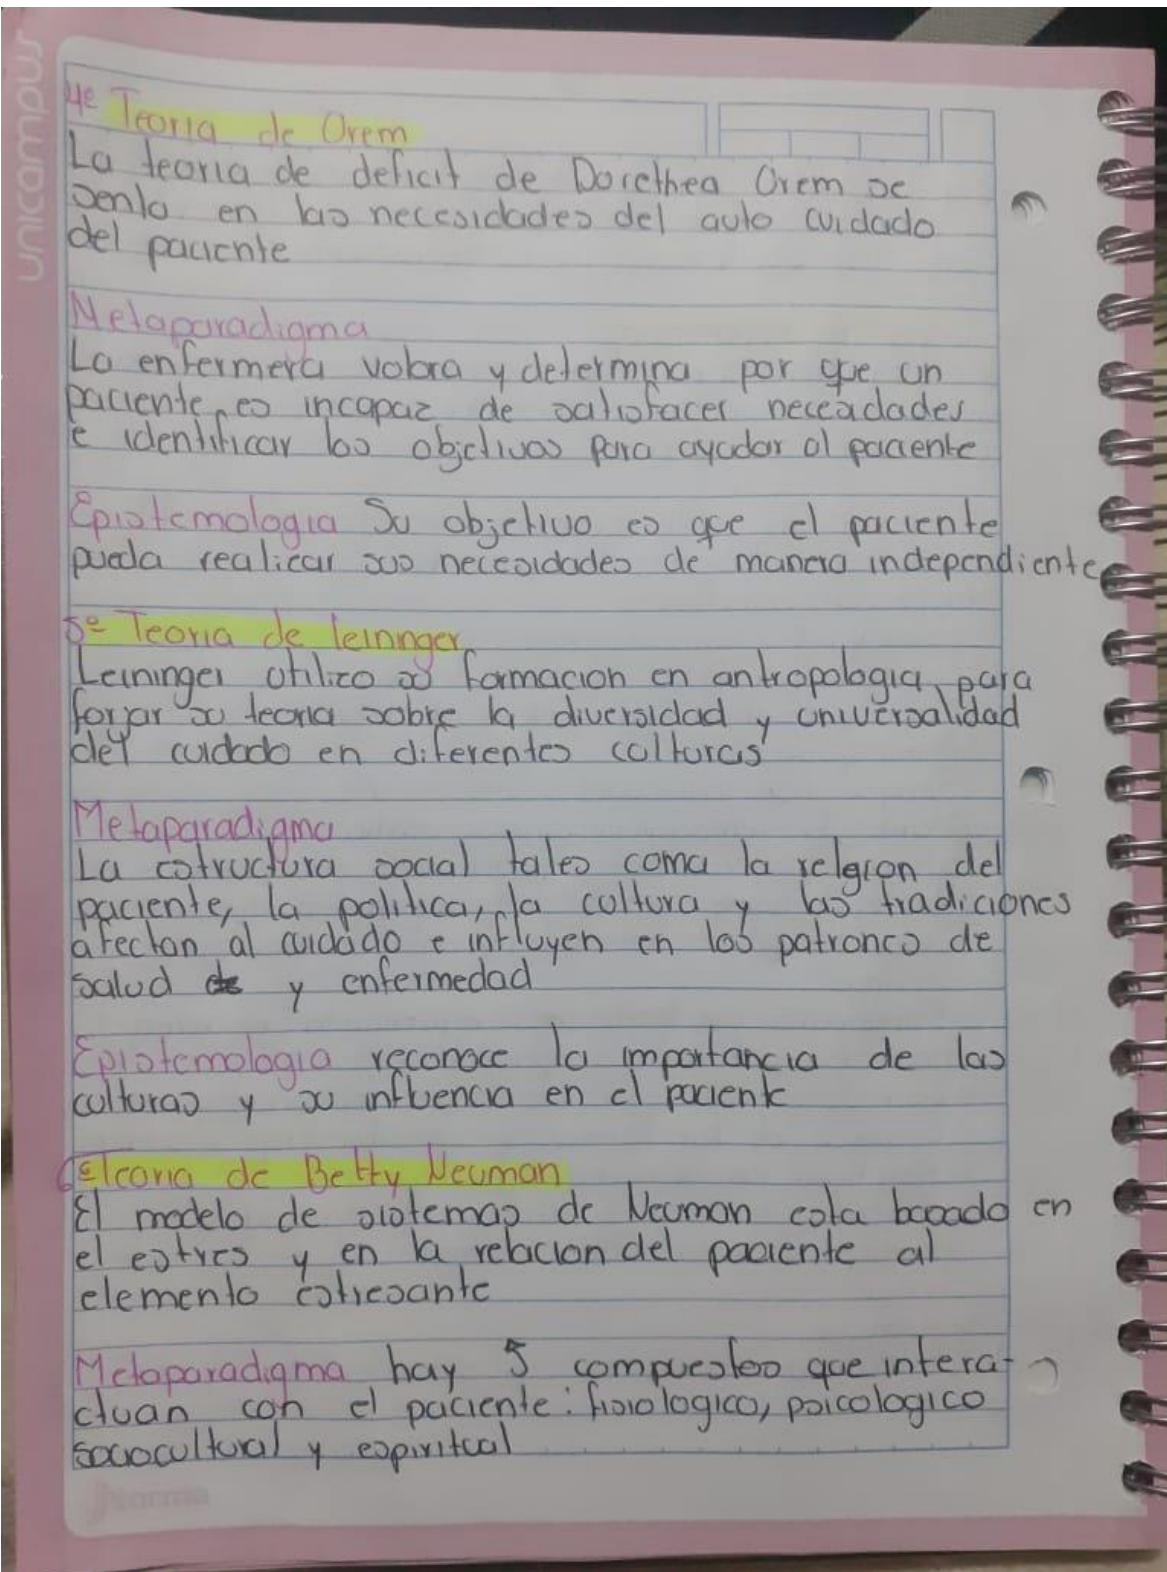 unicampus
4e Teoria de Orem
La teoria de deficit de Dorethea Orem se
senla en las necesidades del auto cuidado
del paciente
Metaparadigma
La enfermera valora y determina por que un
paciente es incapaz de satisfacer neceadades
e identificar los objetivos para ayudar al paciente
Epistemologia Su objetivo es que el paciente
pueda realicar sus necesidades de manera independiente
5º Teoria de leininger
Leininger utilizo su formacion en antropologia para
forjar su teoria sobre la diversidad y universalidad
del cuidado en diferentes culturas
Metaparadigma
La estructura social tales coma la relgion del
paciente, la politica, la cultura y las tradiciones
afectan al cuidado e influyen en los patrones de
salud de y enfermedad
Epistemologia reconoce la importancia de las
culturas y su influencia en el paciente
6º Teoria de Betty Neuman
El modelo de sistemas de Neuman esta basado en
el estres y en la relacion del paciente al
elemento estresante
Metaparadigma hay 5 compuestos que intera-
ctuan con el paciente: fisiologico, psicologico
sociocultural y espiritual
Norma